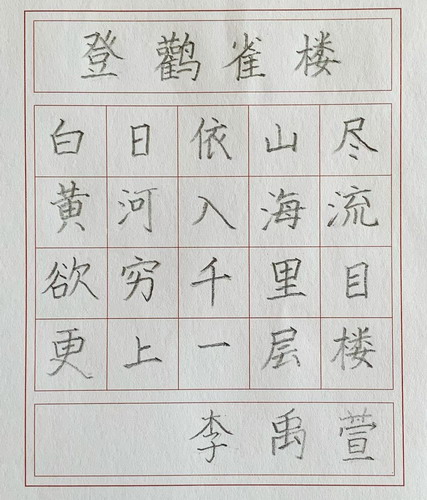 登鹳雀楼
白日依山尽
黄河入海流
欲穷千里目
更上一层楼
李禹萱